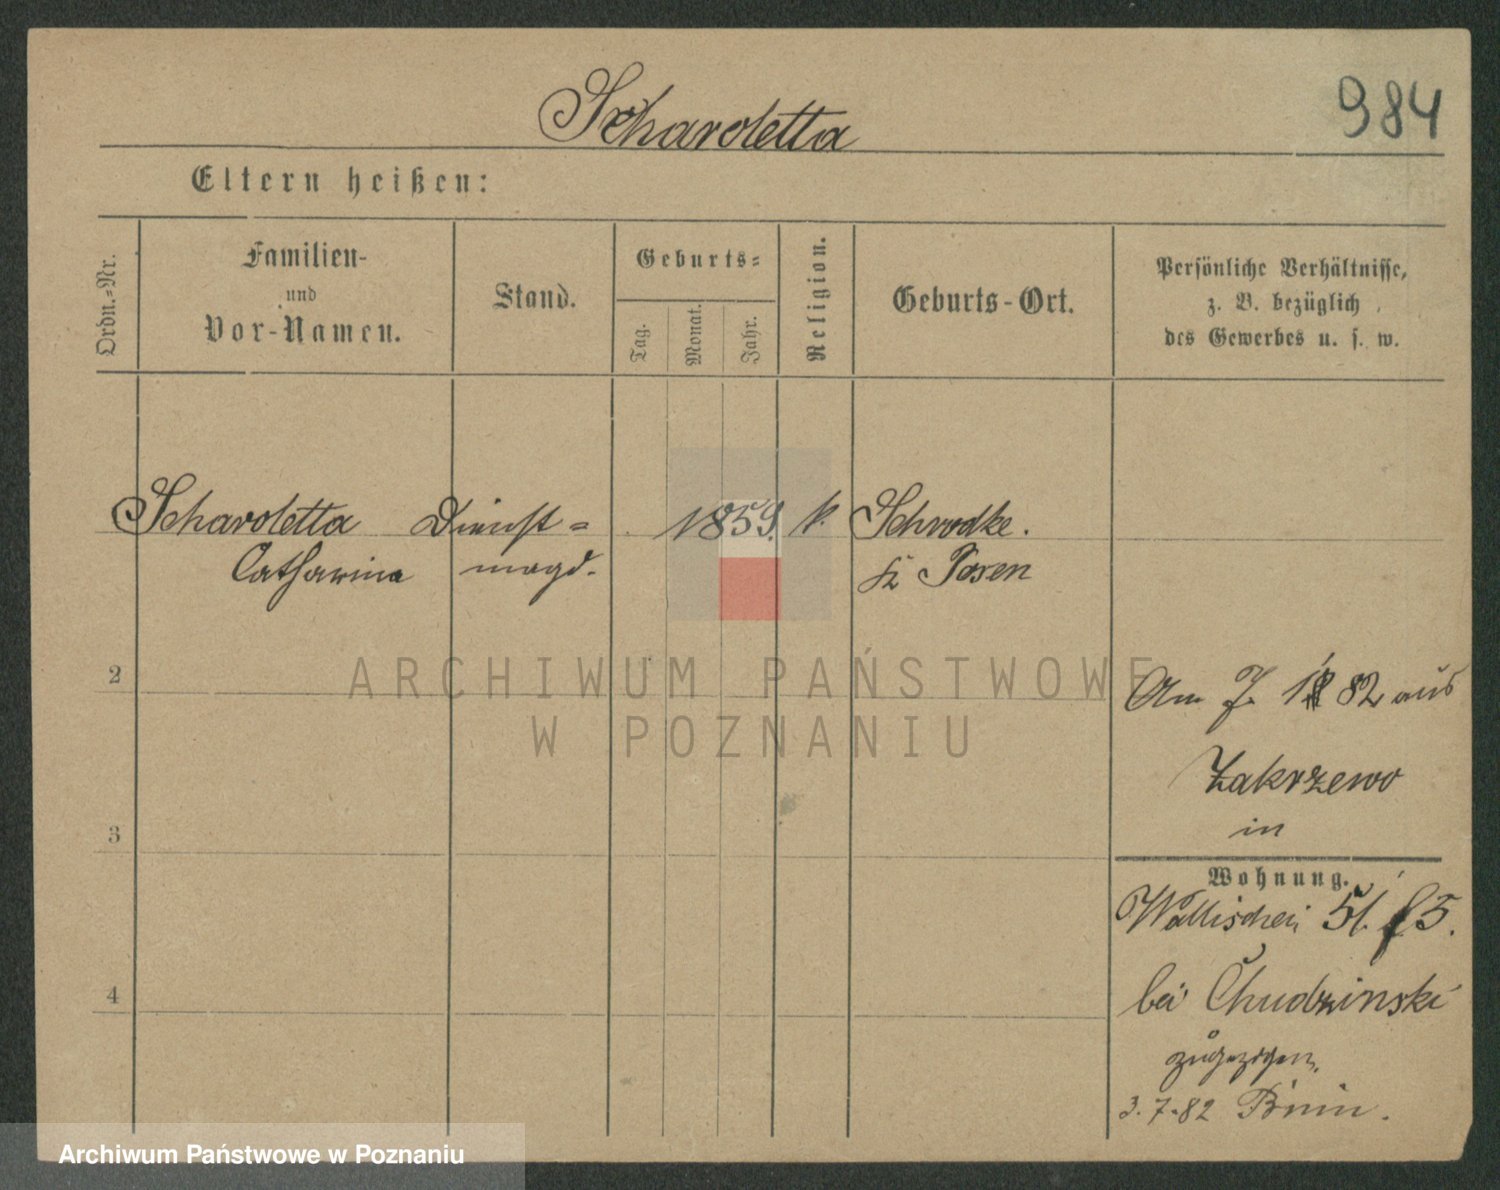 Scharoletta
984
Eltern heißen:
Ordn.-Nr.
Familien-
und
Vor-Namen.
Stand.
Geburts-
Tag.
Monat.
Jahr.
Religion.
Geburts-Ort.
Persönliche Verhältnisse,
z. B. bezüglich
des Gewerbes u. s. w.
Scharoletta Dienst= 1859. k. Schrodke.
Catharina magd. Posen
2
Am 82 aus
Zakrzewo
in
3
Wohnung.
Wallischei 51.
4
bei Chudzinski
zugezogen.
3.7.82
ARCHIWUM PAŃSTWOWE
W POZNANIU
Archiwum Państwowe w Poznaniu